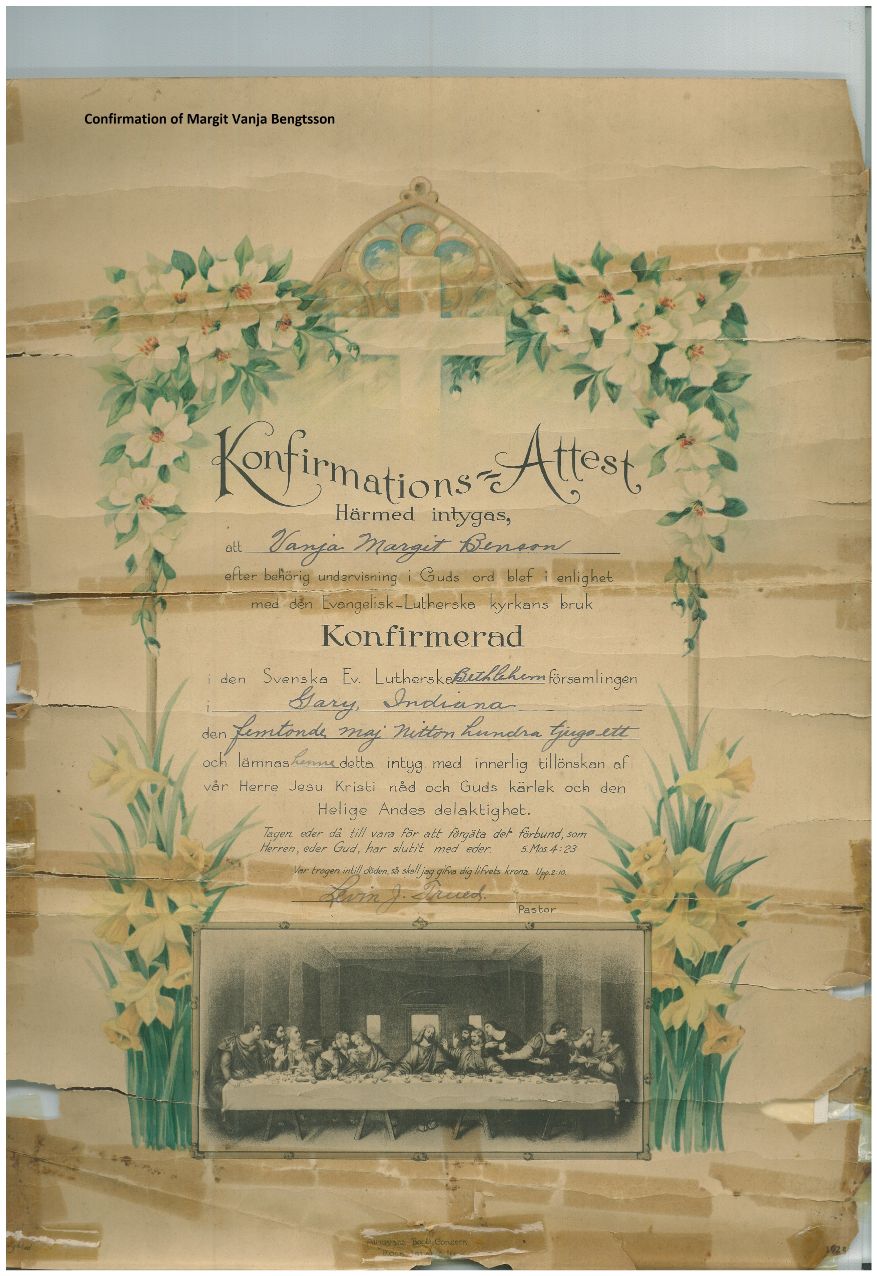 Confirmation of Margit Vanja Bengtsson
Konfirmations=Attest
Härmed intygas,
att Vanja Margit Benson
efter behörig undervisning i Guds ord blef i enlighet
med den Evangelisk-Lutherska kyrkans bruk
Konfirmerad
i den Svenska Ev. Lutherska Bethlehem församlingen
i Gary, Indiana
den femtonde maj Nitton hundra tjugo ett
och lämnas henne detta intyg med innerlig tillönskan af
vår Herre Jesu Kristi nåd och Guds kärlek och den
Helige Andes delaktighet.
Tagen eder då till vara för att förgäta det förbund, som
Herren, eder Gud, har slutit med eder. 5. Mos. 4:23
Var trogen intill döden, så skall jag gifva dig lifvets krona. Upp. 2:10.
Levin J. Trued.
Pastor
Book Concern